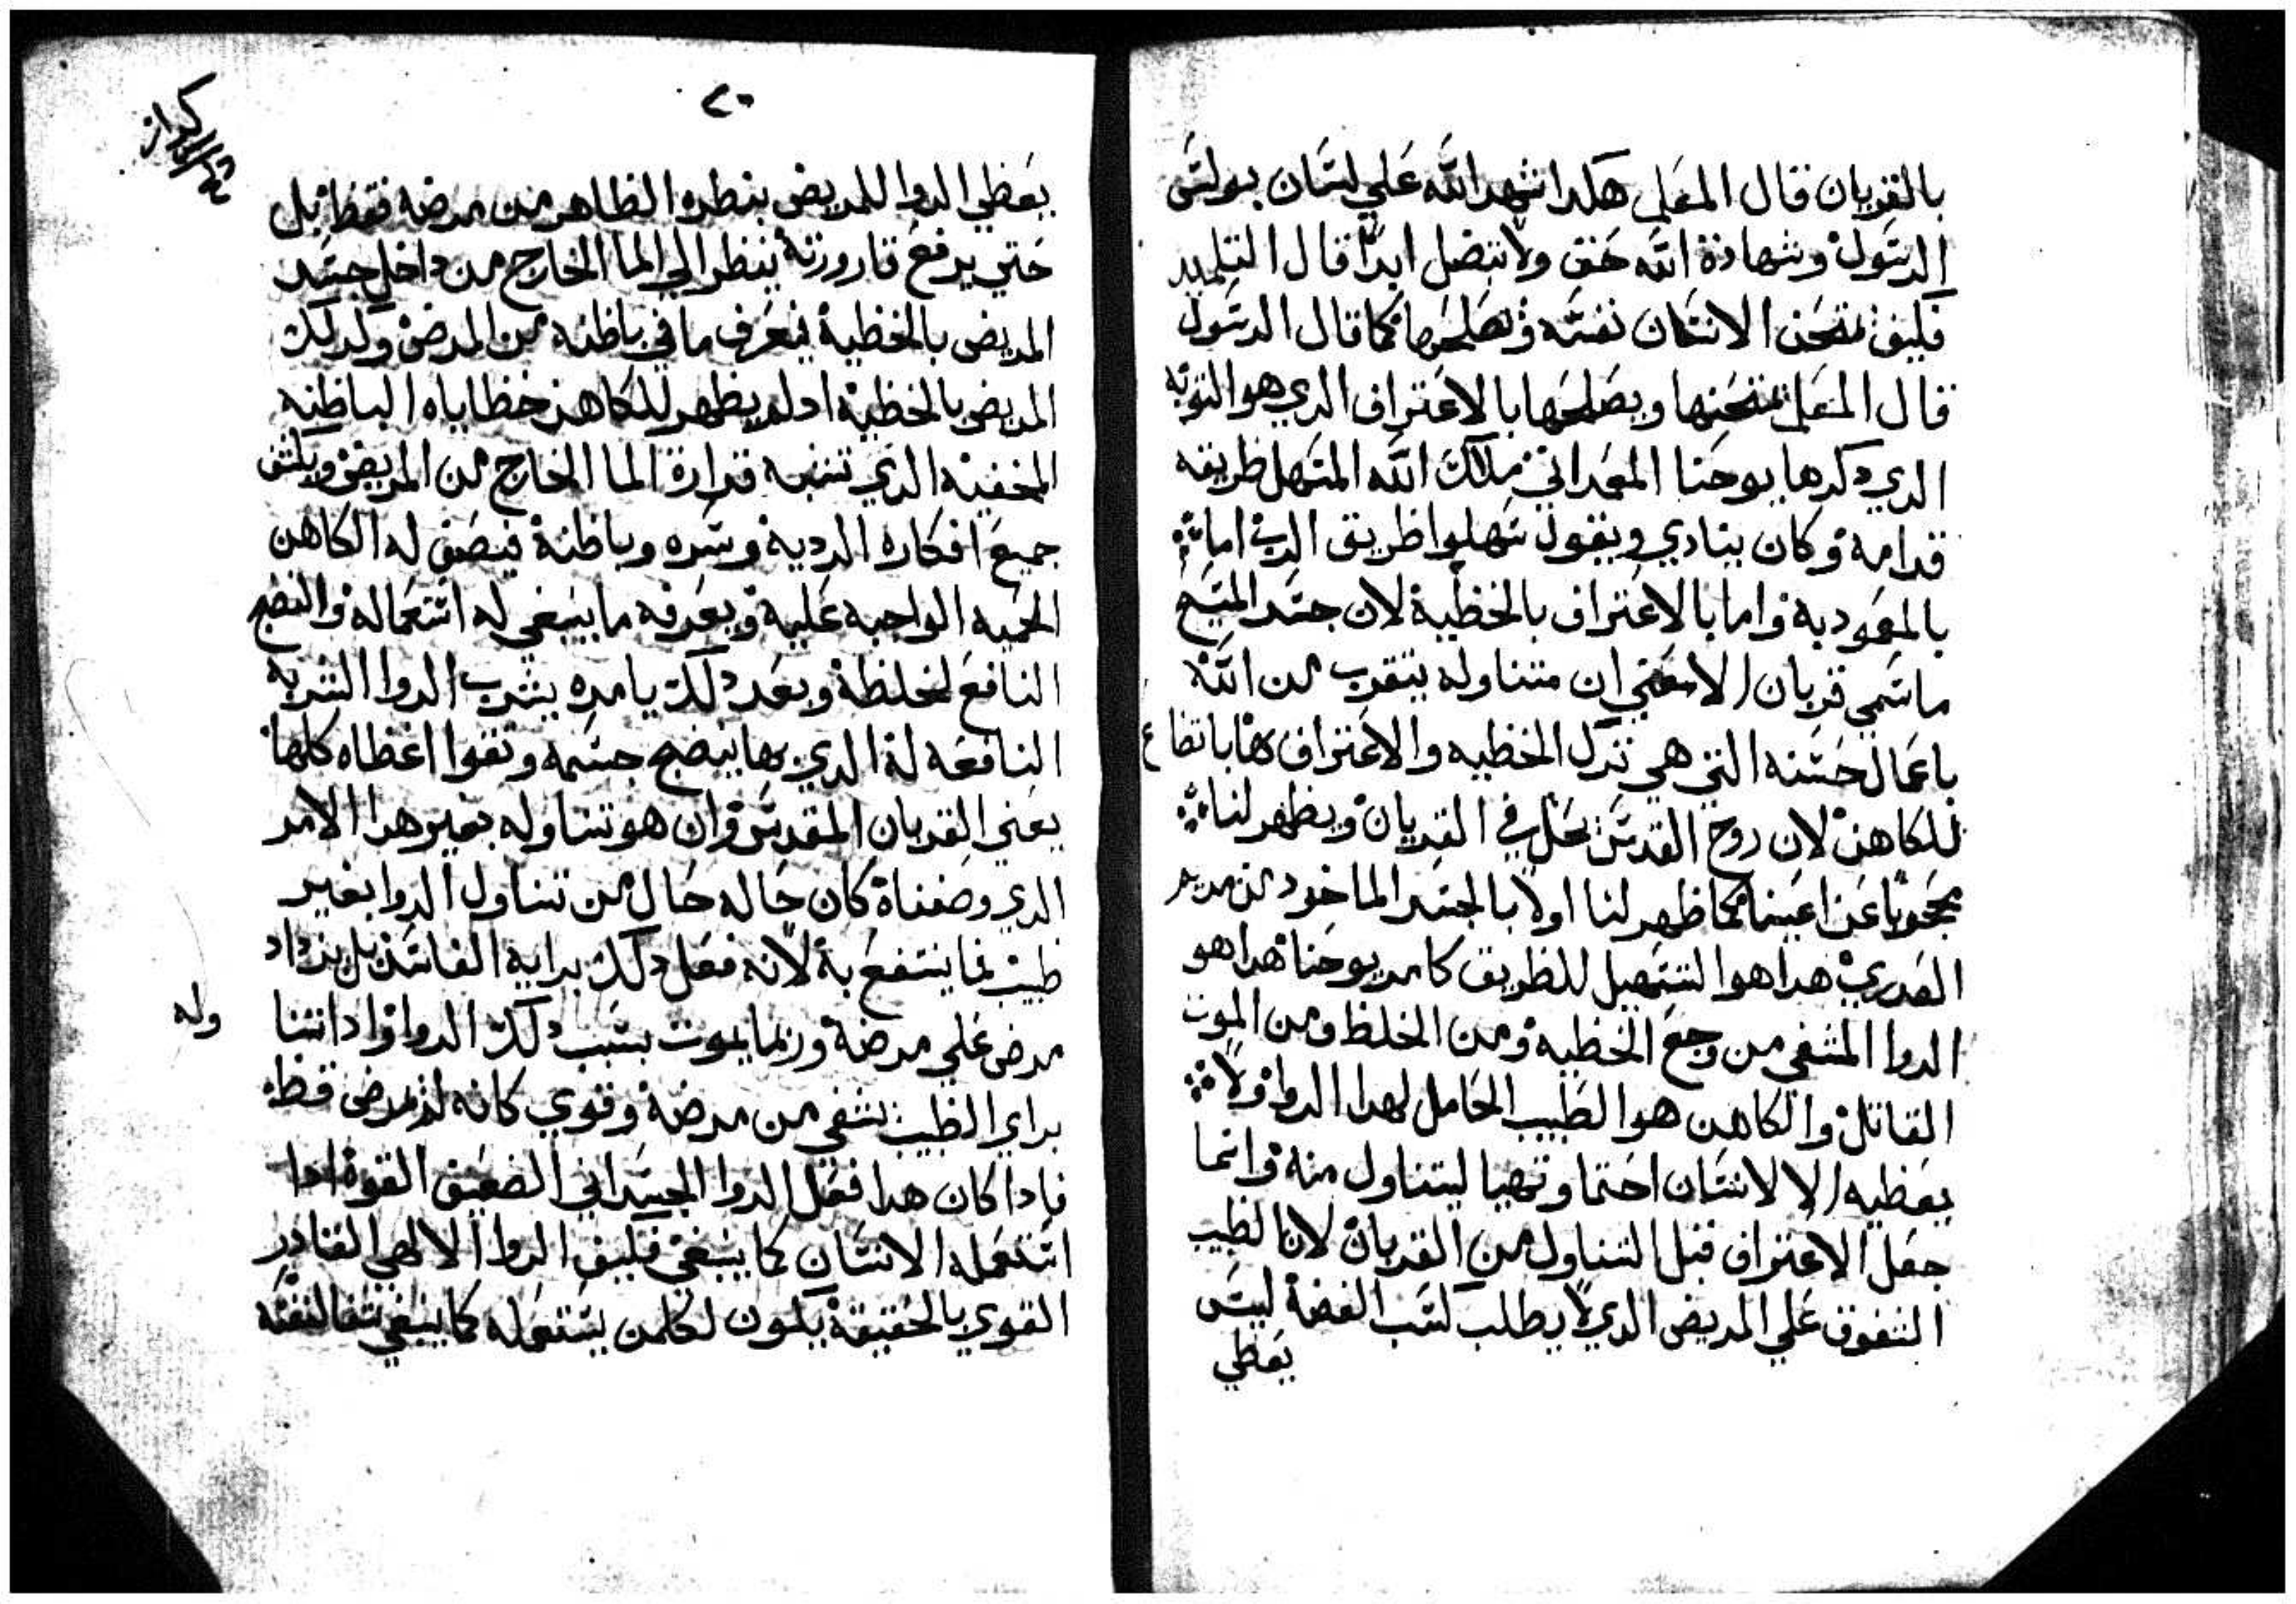 بالقربان قال المعلم هكدا شهد الله علي لسان بولس
الرسول وشهادة الله حق ولا تبطل ابدا قال التلميد
فكيف يمتحن الانسان نفسه ويصلحها كما قال الرسول
قال المعلم يمتحنها ويصلحها بالاعتراف الدي هو التوبه
الدي دكرها يوحنا المعمداني ملاك الله المسهل طريقه
قدامه وكان ينادي ويقول سهلوا طريق الرب اما
بالمعموديه واما بالاعتراف بالخطية لان جسد المسيح
ما سمي قربان الا يعني ان متناوله يتقرب من الله
باعمال حسنه التي هي ترك الخطيه والاعتراف بها باتضاع
للكاهن لان روح القدس يحل في القربان ويظهر لنا
محجوبا عن اعيننا كما ظهر لنا اولا بالجسد الماخود من مريم
العدري هدا هو التسهيل للطريق كامر يوحنا هدا هو
الدوا المشفي من وجع الخطيه ومن الخلط ومن الموت
القاتل والكاهن هو الطبيب الحامل لهدا الدوا ولا
يعطيه الا لانسان احتما وتهيا ليتناول منه وانما
جعل الاعتراف قبل التناول من القربان لان الطبيب
الشفوق علي المريض الدي لا يطلب كسب الفضة ليس
يعطي
٢٠
يعطي الدوا للمريض بنطره الظاهر من مرضه فقط بل
حتي يرفع قارورته ينظر الي الما الخارج من داخل جسد
المريض بالخطية فيعرف ما في باطنه من المرض وكدلك
المريض بالخطية ادلم يظهر للكاهن خطاياه الباطنه
المخفيه الدي تشبه قرارة الما الخارج من المريض ويكشف
جميع افكاره الرديه وسره وباطنة فيصف له الكاهن
الحميه الواجبه عليه ويعرفه ما ينبغي له استعماله والنضج
النافع لخلطة وبعد دلك يامره بشرب الدوا الشربه
النافعه له الدي بها ينضج جسمه وتقوا اعظاه كلها
يعني القربان المقدس وان هو تناوله بغير هدا الامر
الدي وصفناه كان حاله حال من تناول الدوا بغير
طبيب فما ينتفع به لانه فعل دلك برايه الفاسد بل يزداد
مرض علي مرضه وربما يموت بسبب دلك الدوا وادا انسا
براي الطبيب شفي من مرضه وقوي كانه لم يمرض قط
فادا كان هدا فعل الدوا الجسداني الضعيف القوة ادا
استعمله الانسان كما ينبغي فكيف الدوا الالهي القادر
القوي بالحقيقة يكون لكل من يستعمله كما ينبغي شفا لنفسه
وله